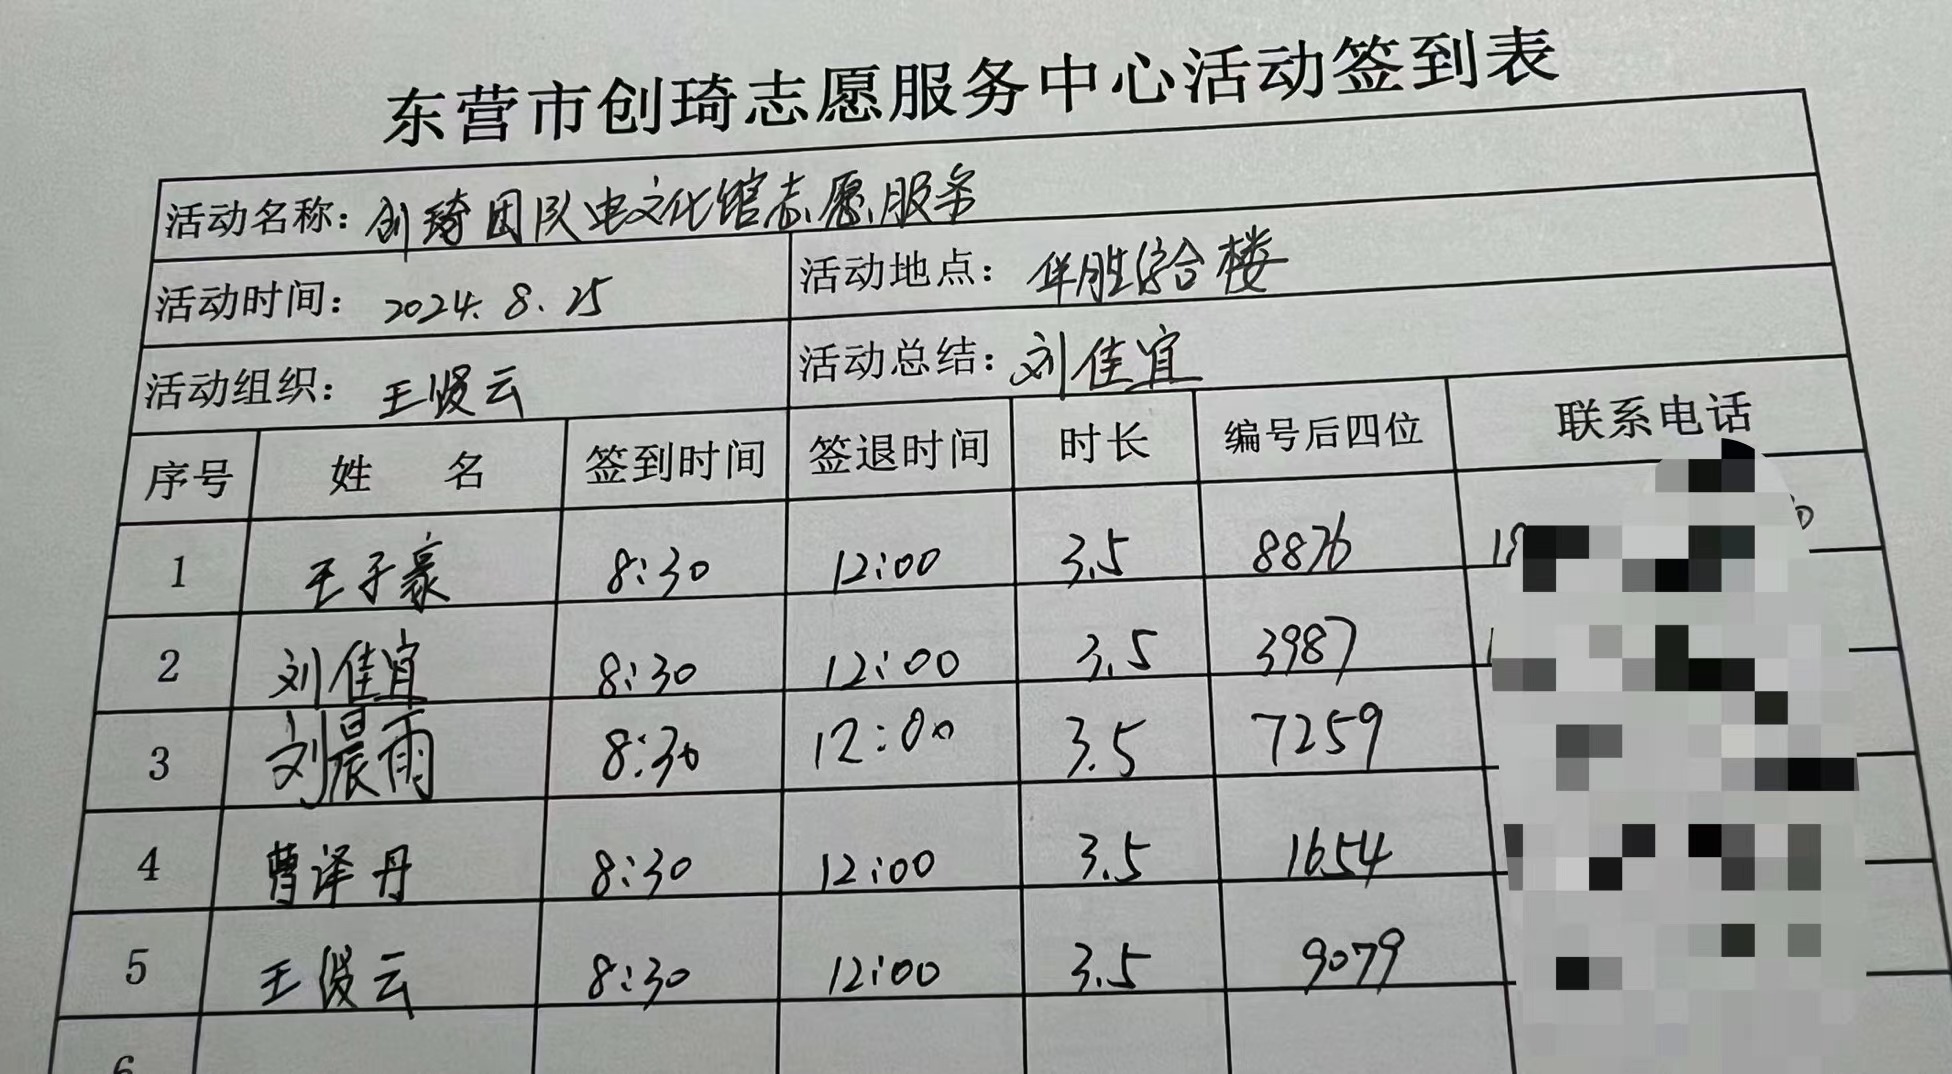 东营市创琦志愿服务中心活动签到表
活动名称：创琦团队电文化馆志愿服务
活动时间：2024.8.25 活动地点：华胜综合楼
活动组织：王俊云 活动总结：刘佳宜
序号 姓 名 签到时间 签退时间 时长 编号后四位 联系电话
1 王子豪 8:30 12:00 3.5 8876
2 刘佳宜 8:30 12:00 3.5 3987
3 刘晨雨 8:30 12:00 3.5 7259
4 曹泽丹 8:30 12:00 3.5 1654
5 王俊云 8:30 12:00 3.5 9079
6